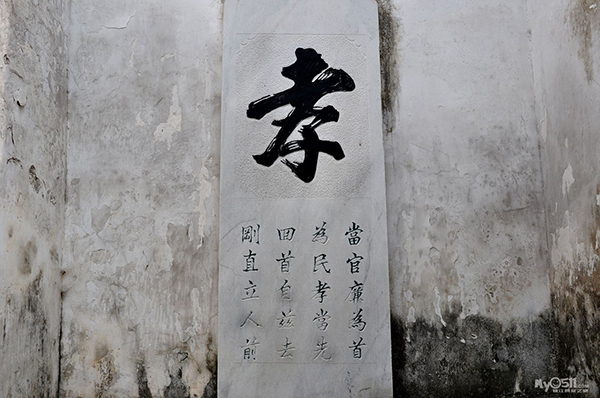 孝
當官廉為首
為民孝當先
回首自兹去
剛直立人前